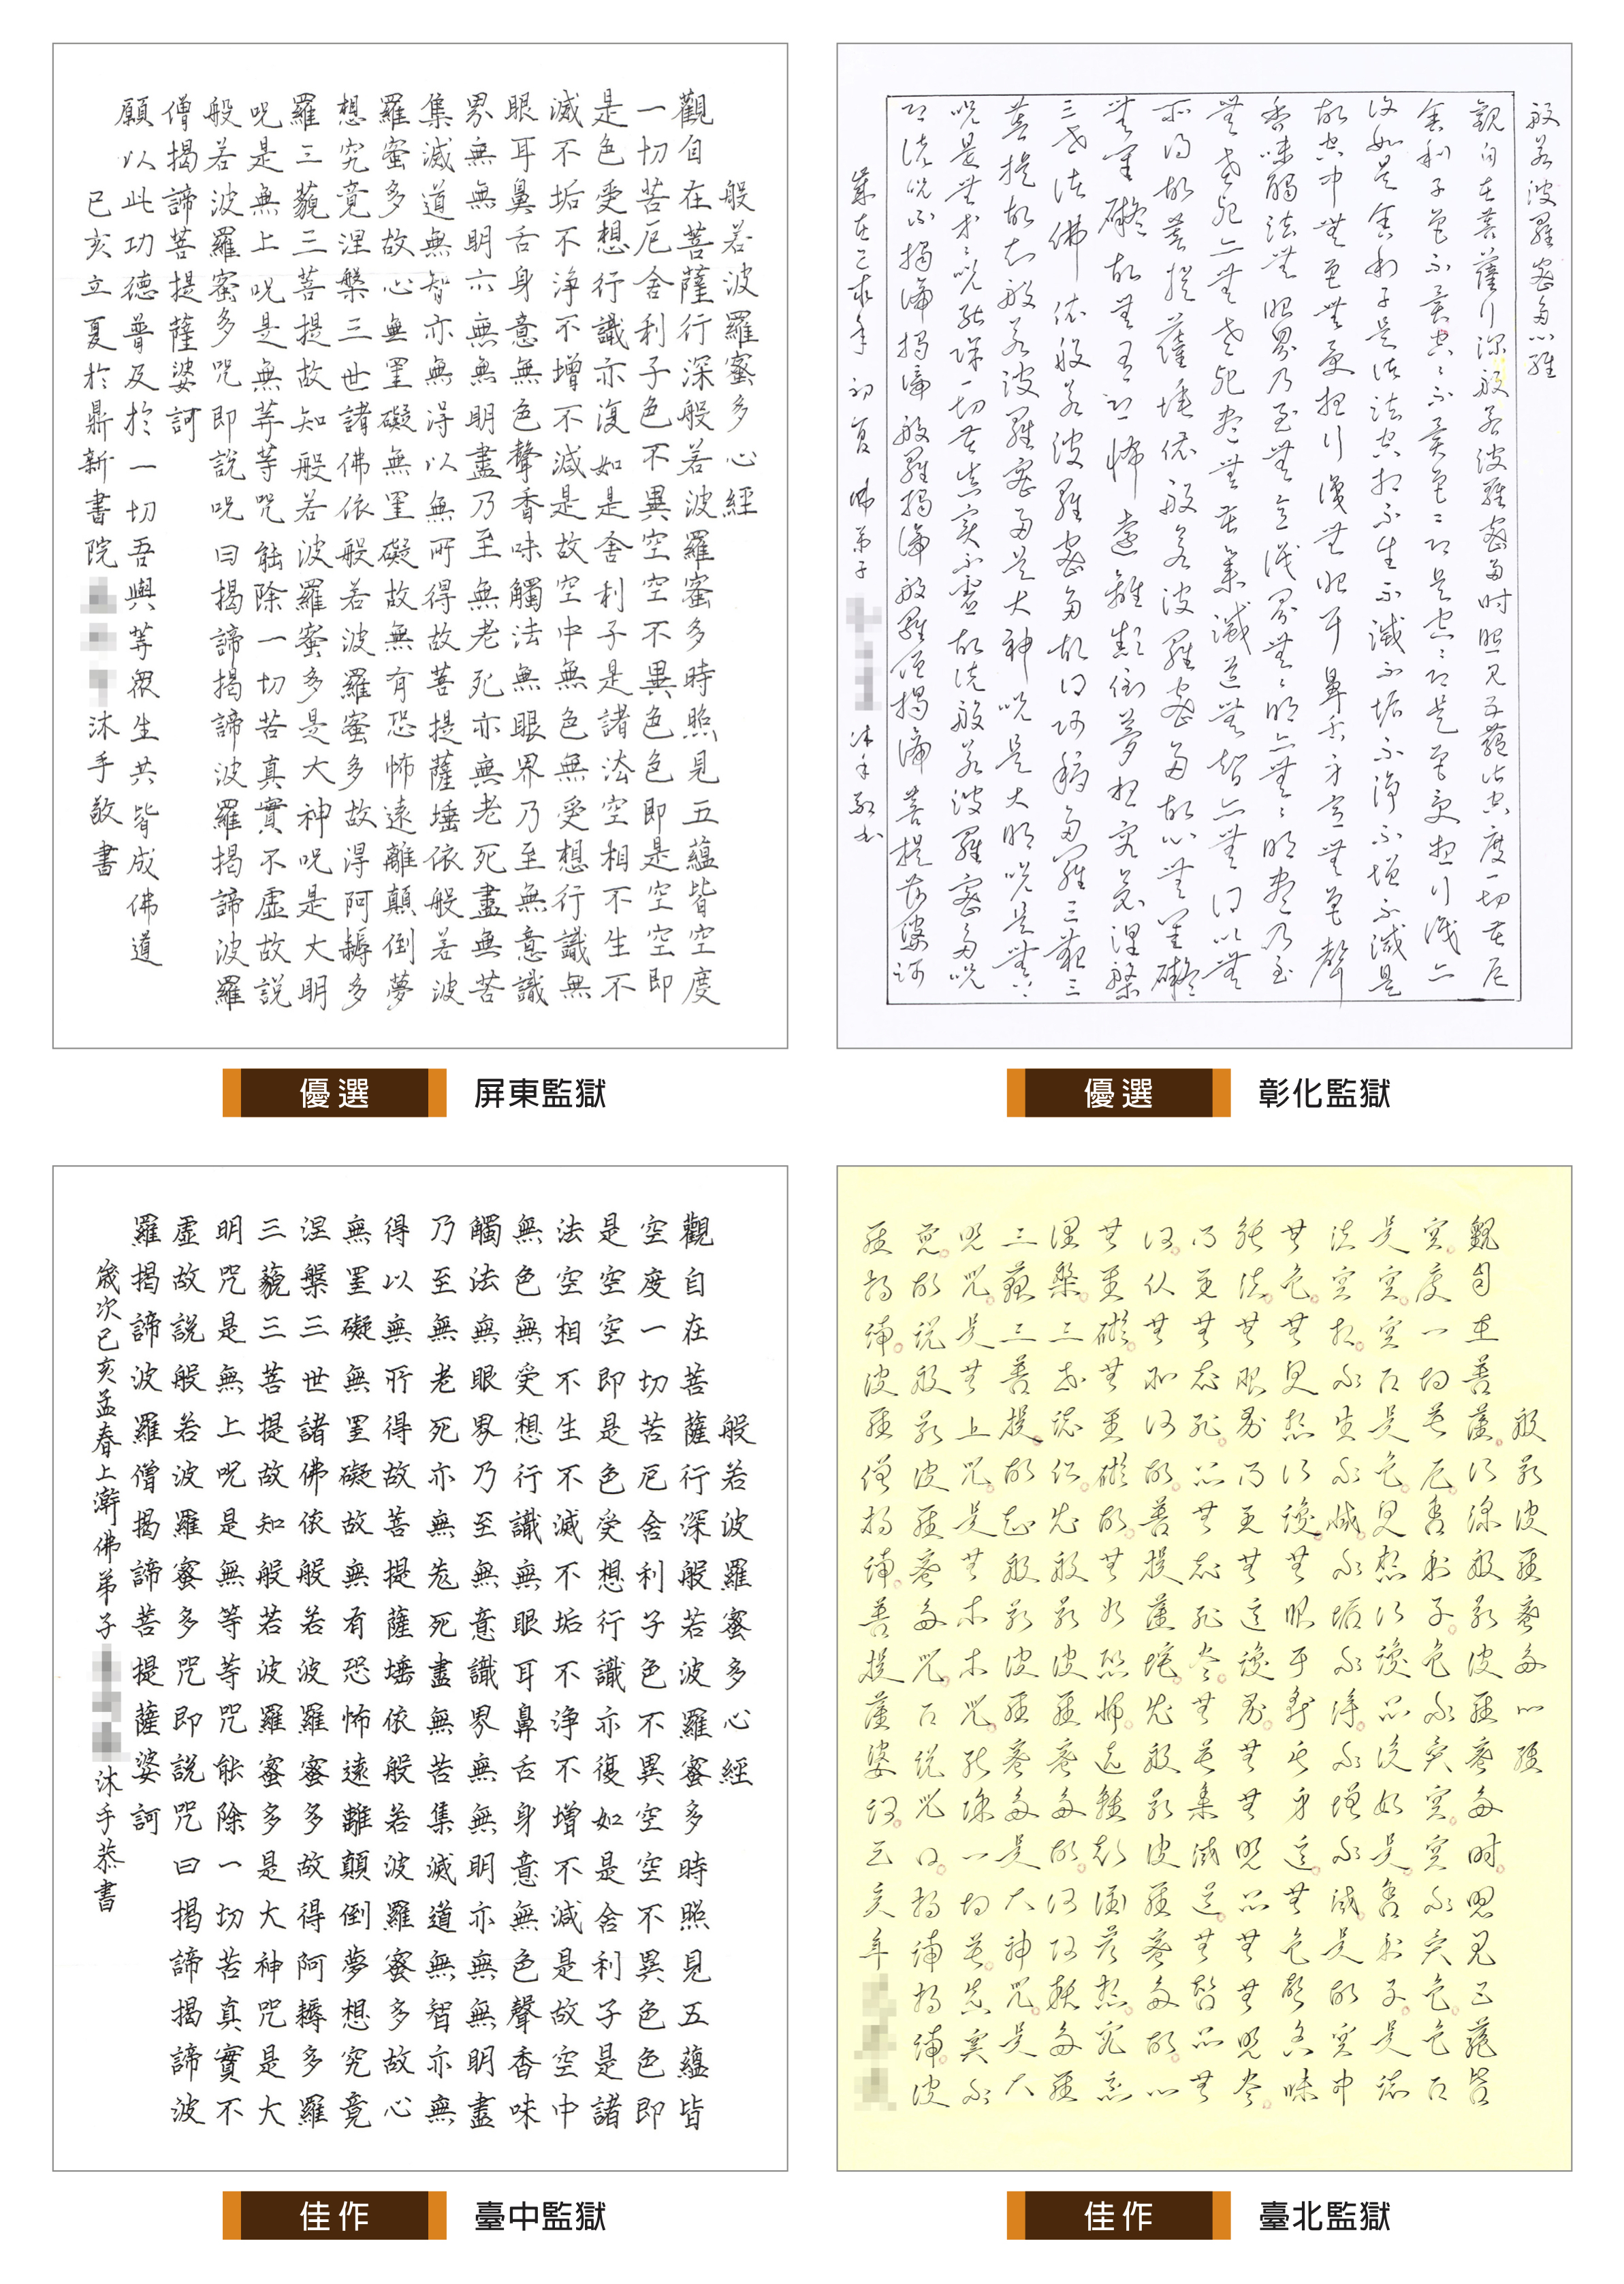 般若波羅蜜多心經
觀自在菩薩行深般若波羅蜜多時照見五蘊皆空度
一切苦厄舍利子色不異空空不異色色即是空空即
是色受想行識亦復如是舍利子是諸法空相不生不
滅不垢不淨不增不減是故空中無色無受想行識無
眼耳鼻舌身意無色聲香味觸法無眼界乃至無意識
界無無明亦無無明盡乃至無老死亦無老死盡無苦
集滅道無智亦無得以無所得故菩提薩埵依般若波
羅蜜多故心無罣礙無罣礙故無有恐怖遠離顛倒夢
想究竟涅槃三世諸佛依般若波羅蜜多故得阿耨多
羅三藐三菩提故知般若波羅蜜多是大神咒是大明
咒是無上咒是無等等咒能除一切苦真實不虛故説
般若波羅蜜多咒即說咒曰揭諦揭諦波羅揭諦波羅
僧揭諦菩提薩婆訶
願以此功德普及於一切吾與等眾生共皆成佛道
己亥立夏於鼎新書院 沐手敬書
優選 屏東監獄
般若波羅蜜多心經
觀自在菩薩行深般若波羅蜜多時照見五蘊皆空度一切苦厄
舍利子色不異空空不異色色即是空空即是色受想行識亦
復如是舍利子是諸法空相不生不滅不垢不淨不增不減是
故空中無色無受想行識無眼耳鼻舌身意無色聲
香味觸法無眼界乃至無意識界無無明亦無無明盡乃至
無老死亦無老死盡無苦集滅道無智亦無得以無
所得故菩提薩埵依般若波羅蜜多故心無罣礙
無罣礙故無有恐怖遠離顛倒夢想究竟涅槃
三世諸佛依般若波羅蜜多故得阿耨多羅三藐三
菩提故知般若波羅蜜多是大神咒是大明咒是無上
咒是無等等咒能除一切苦真實不虛故說般若波羅蜜多咒
即說咒曰揭諦揭諦般羅揭諦般羅僧揭諦菩提莎婆訶
歲在己亥年初夏佛弟子 沐手敬書
優選 彰化監獄
般若波羅蜜多心經
觀自在菩薩行深般若波羅蜜多時照見五蘊皆
空度一切苦厄舍利子色不異空空不異色色即
是空空即是色受想行識亦復如是舍利子是諸
法空相不生不滅不垢不淨不增不減是故空中
無色無受想行識無眼耳鼻舌身意無色聲香味
觸法無眼界乃至無意識界無無明亦無無明盡
乃至無老死亦無老死盡無苦集滅道無智亦無
得以無所得故菩提薩埵依般若波羅蜜多故心
無罣礙無罣礙故無有恐怖遠離顛倒夢想究竟
涅槃三世諸佛依般若波羅蜜多故得阿耨多羅
三藐三菩提故知般若波羅蜜多是大神咒是大
明咒是無上咒是無等等咒能除一切苦真實不
虛故說般若波羅蜜多咒即說咒曰揭諦揭諦波
羅揭諦波羅僧揭諦菩提薩婆訶
歲次己亥孟春上澣佛弟子 沐手恭書
佳作 臺中監獄
般若波羅蜜多心經
觀自在菩薩。行深般若波羅蜜多時。照見五蘊皆
空。度一切苦厄。舍利子。色不異空。空不異色。色即
是空。空即是色。受想行識。亦復如是。舍利子。是諸
法空相。不生不滅。不垢不淨。不增不減。是故空中
無色。無受想行識。無眼耳鼻舌身意。無色聲香味
觸法。無眼界乃至無意識界。無無明亦無無明盡。
乃至無老死。亦無老死盡。無苦集滅道。無智亦無
得。以無所得故。菩提薩埵。依般若波羅蜜多故。心
無罣礙。無罣礙故。無有恐怖。遠離顛倒夢想。究竟
涅槃。三世諸佛。依般若波羅蜜多故。得阿耨多羅
三藐三菩提。故知般若波羅蜜多。是大神咒。是大
咒。是無上咒。是無等等咒。能除一切苦。真實不
虛。故說般若波羅蜜多咒。即說咒曰。揭諦揭諦。波
羅揭諦。波羅僧揭諦。菩提薩婆訶。己亥年
佳作 臺北監獄